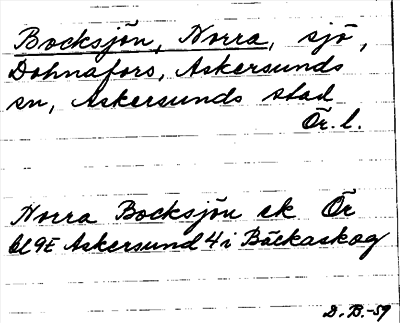 Bocksjön, Norra, sjö,
Dohnafors, Askersunds
sn, Askersunds stad
Ör. l.
Norra Bocksjön ek Ör
bl 9E Askersund 4 i Bäckaskog
D. B.-59